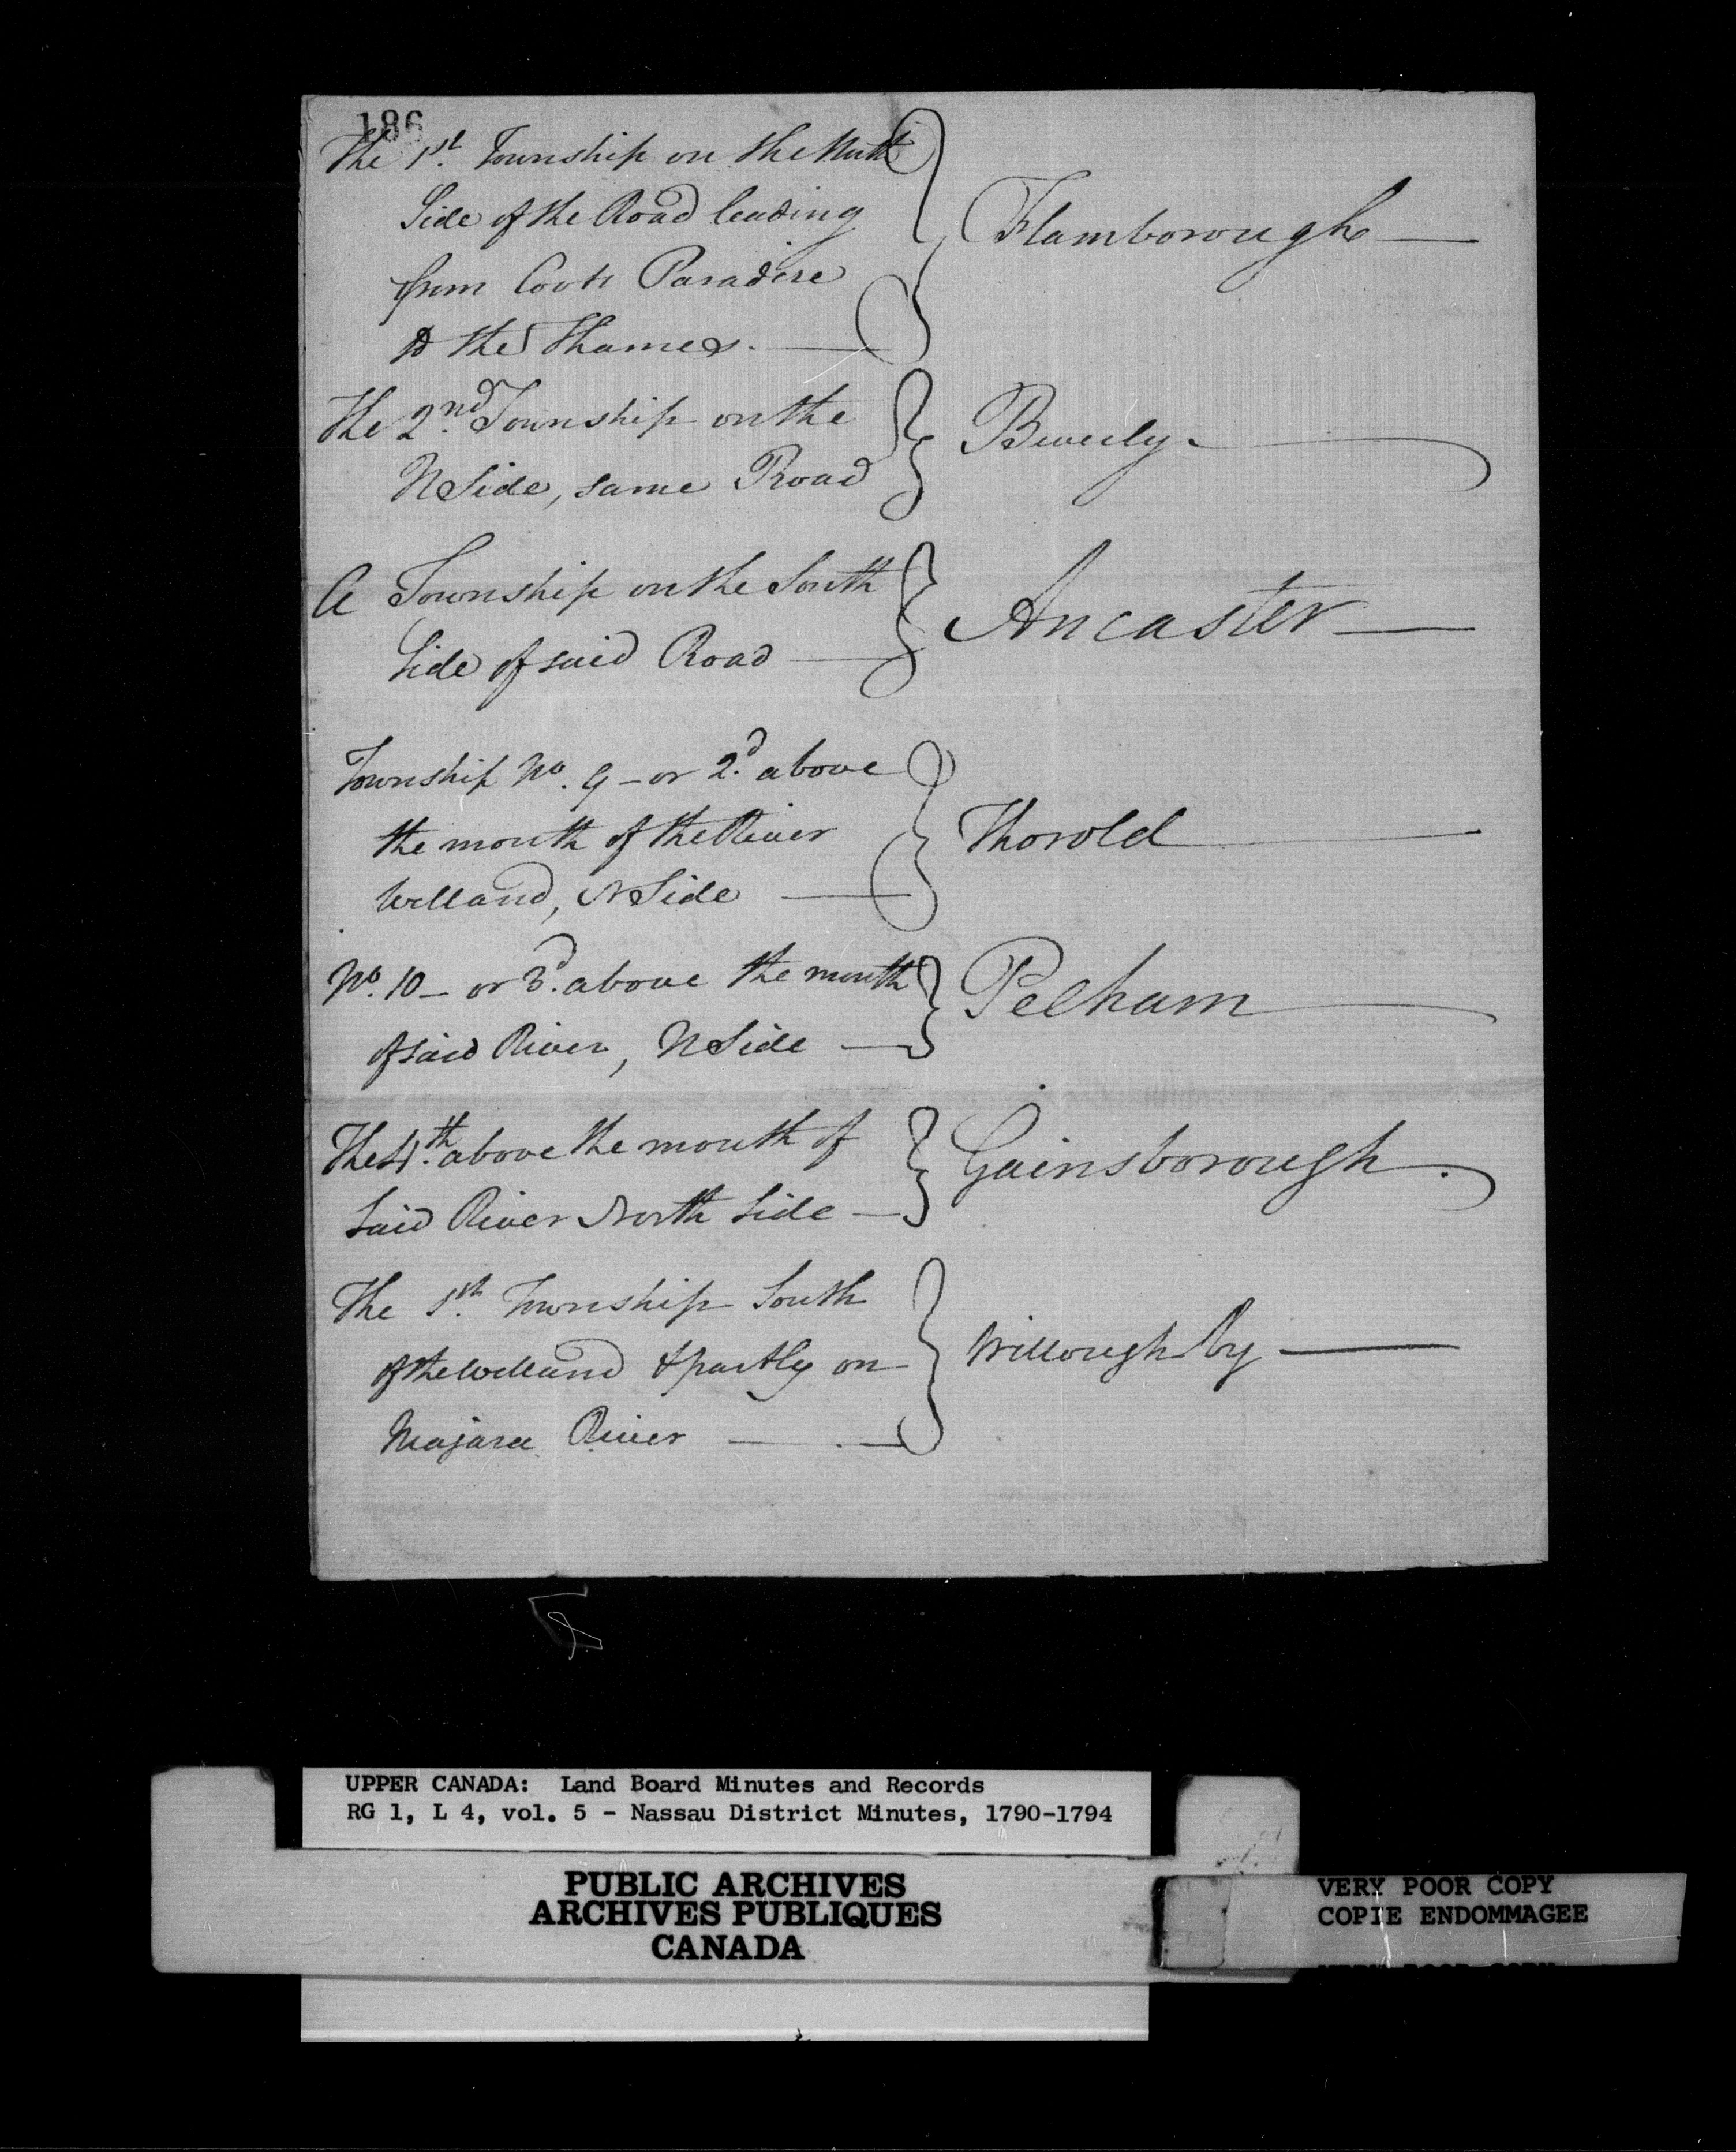 186
The 1st. Township on the North
Side of the Road leading
from Coots Paradise
to the Thames. —
Flamborough —
The 2nd. Township on the
N Side, same Road
Beverly —
A Township on the South
Side of said Road —
Ancaster —
Township No. 9 - or 2d. above
the mouth of the River
Welland, N Side —
Thorold —
No. 10 - or 3d. above the mouth
of said River, N Side —
Pelham —
The 4th. above the mouth of
Said River North Side —
Gainsborough.
The 1st. Township South
of the Welland & partly on
Niagara River —
Willoughby —
UPPER CANADA: Land Board Minutes and Records
RG 1, L 4, vol. 5 - Nassau District Minutes, 1790-1794
PUBLIC ARCHIVES
ARCHIVES PUBLIQUES
CANADA
VERY POOR COPY
COPIE ENDOMMAGEE